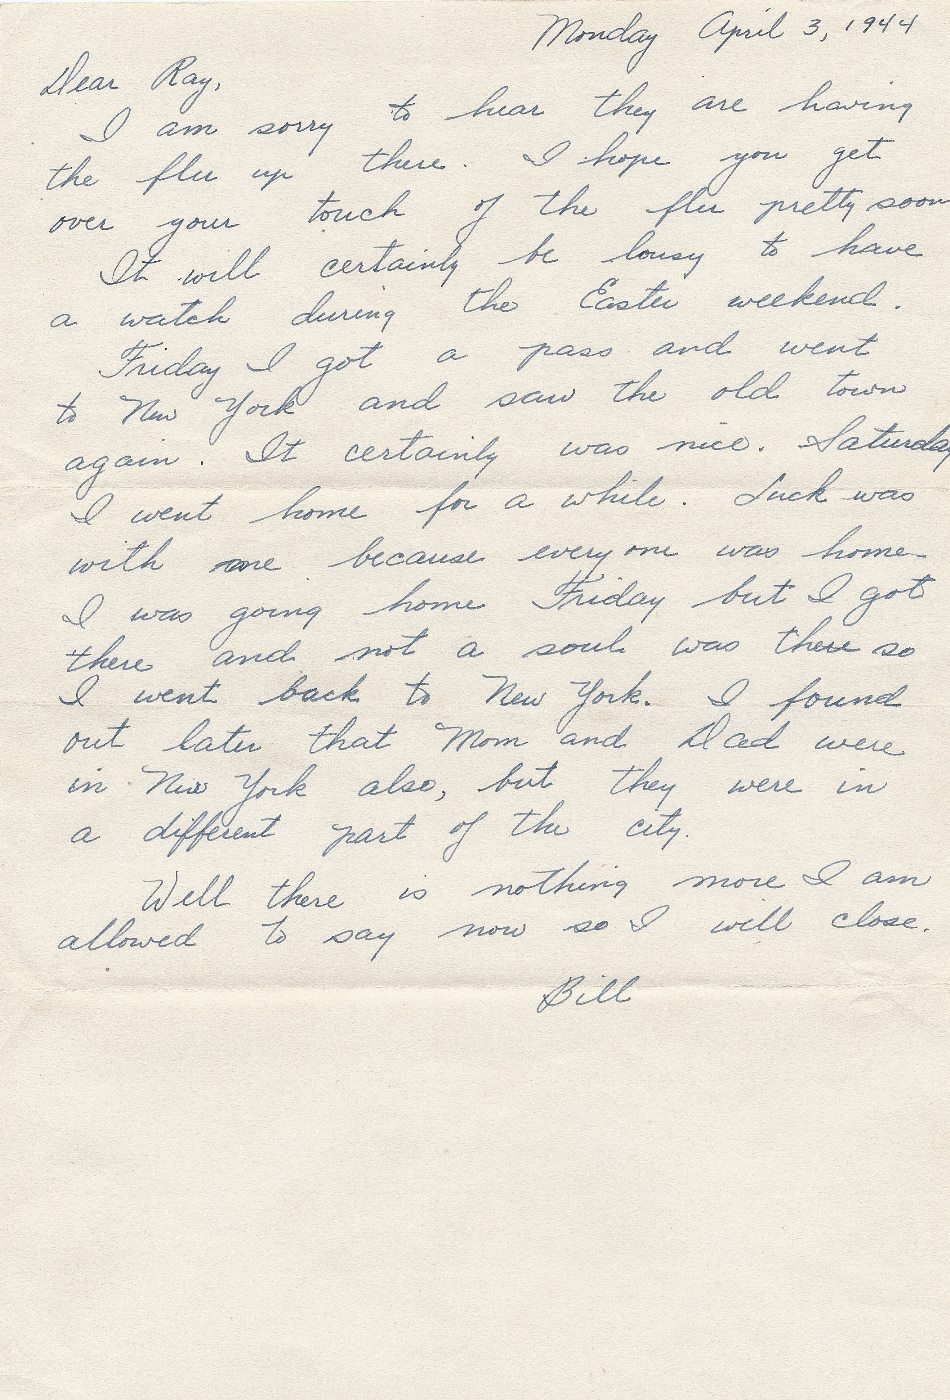 Monday April 3, 1944
Dear Ray,
I am sorry to hear they are having
the flu up there. I hope you get
over your touch of the flu pretty soon
It will certainly be lousy to have
a watch during the Easter weekend.
Friday I got a pass and went
to New York and saw the old town
again. It certainly was nice. Saturday
I went home for a while. Luck was
with me because everyone was home.
I was going home Friday but I got
there and not a soul was there so
I went back to New York. I found
out later that Mom and Dad were
in New York also, but they were in
a different part of the city.
Well there is nothing more I am
allowed to say now so I will close.
Bill